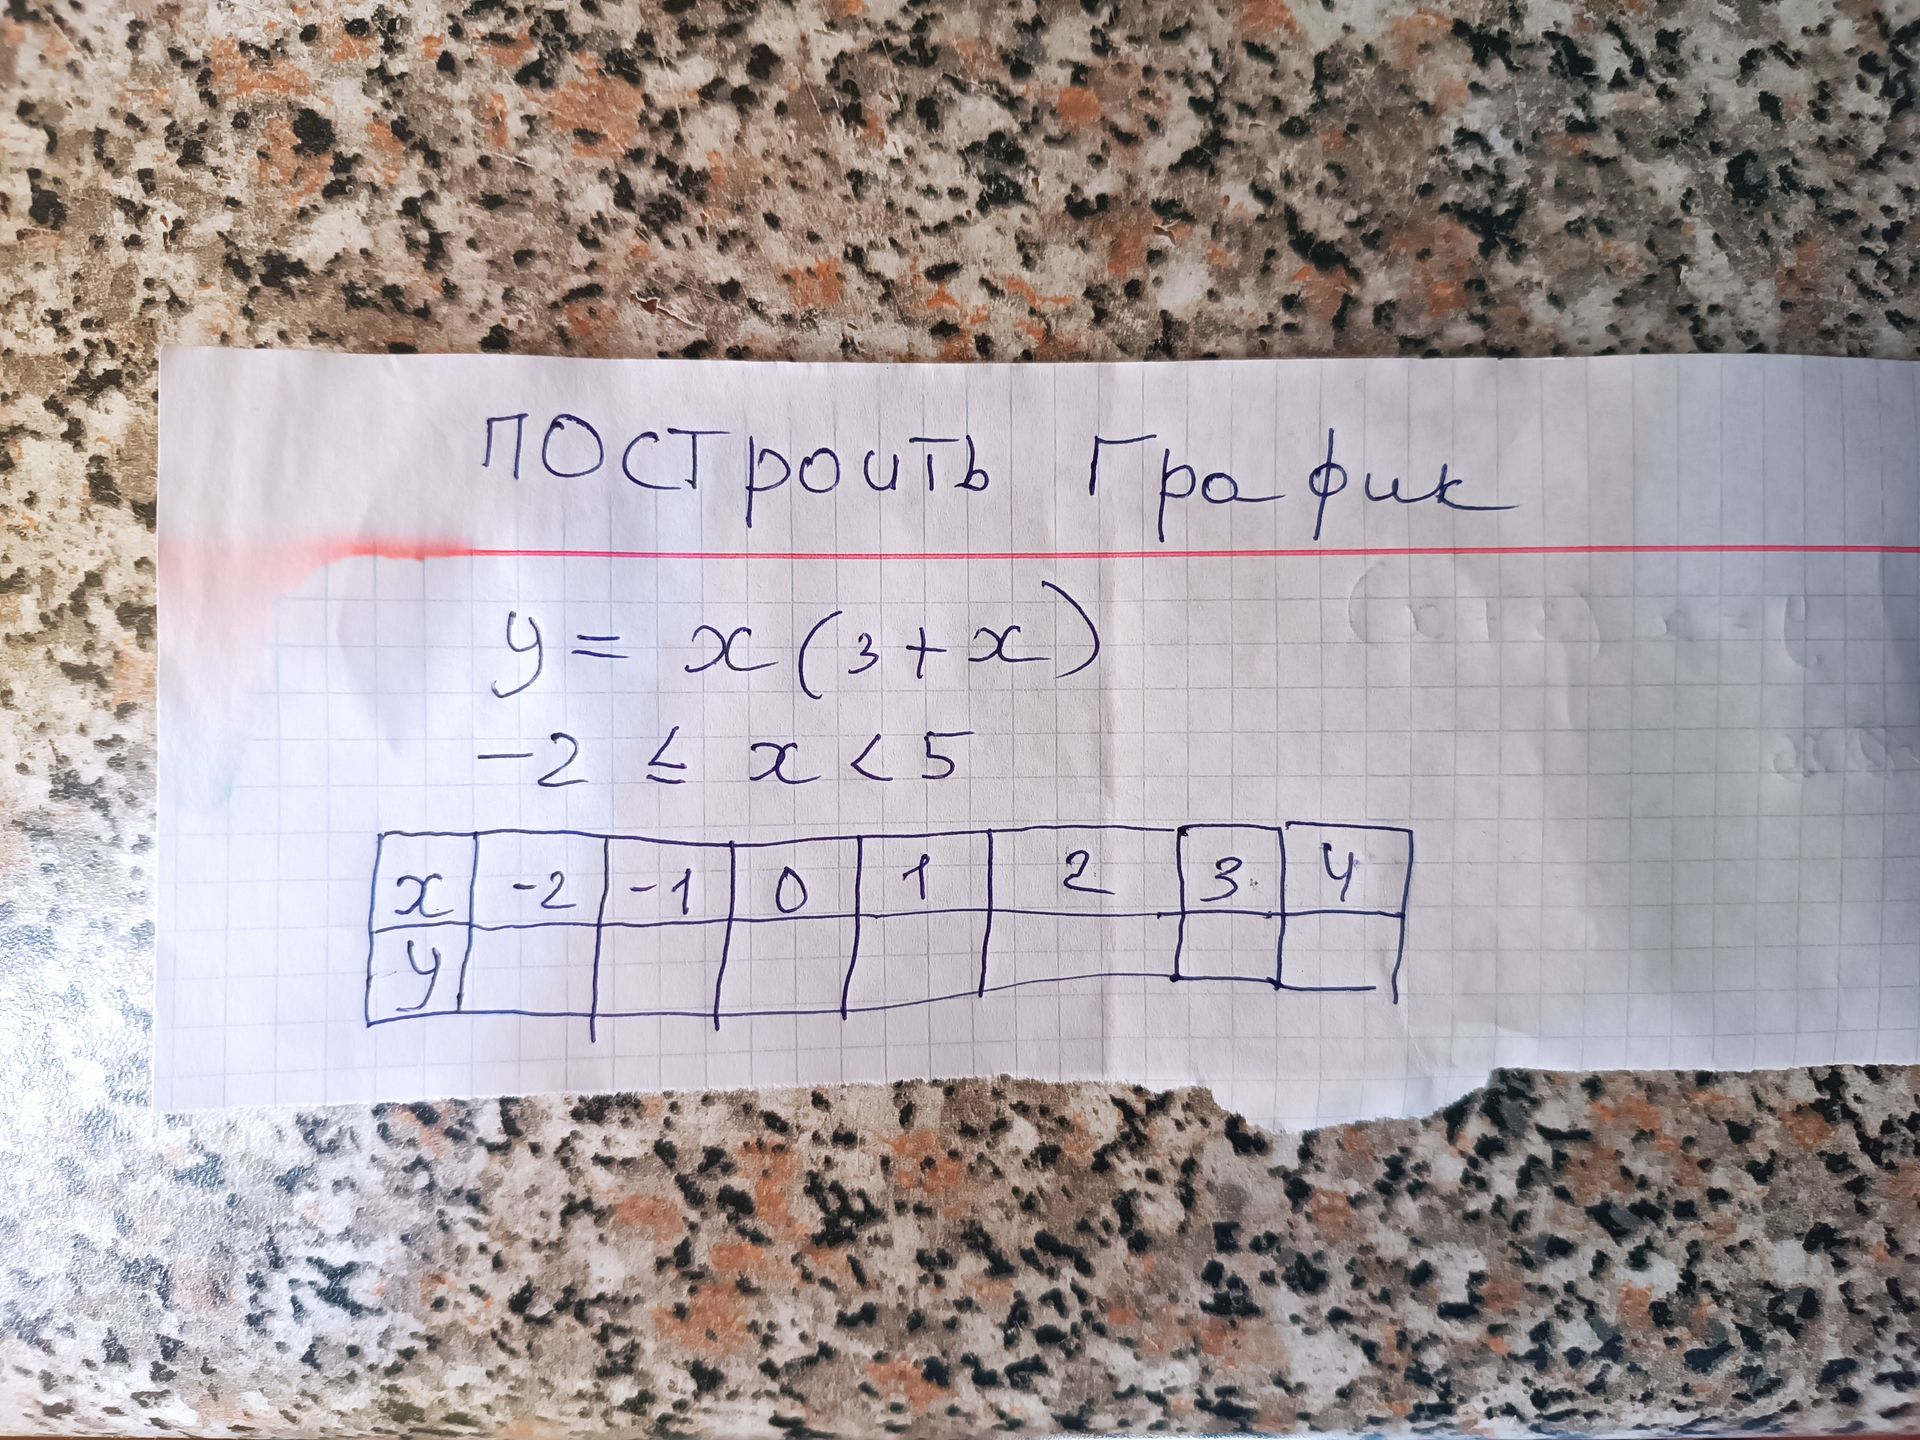 Построить График
y = x(3+x)
-2 ≤ x < 5
x -2 -1 0 1 2 3 4
y